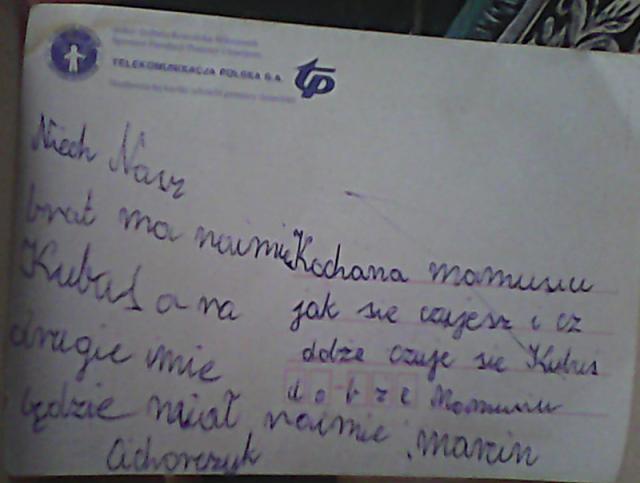 TELEKOMUNIKACJA POLSKA S.A.
tp
Niech Nasz
brat ma naimie
Kubuś a na
drugie imie
będzie miał naimie marcin
Cichorczyk
Kochana mamusiu
jak sie czujesz i cz
dobże czuje sie Kubus
dobrze Mamusiu